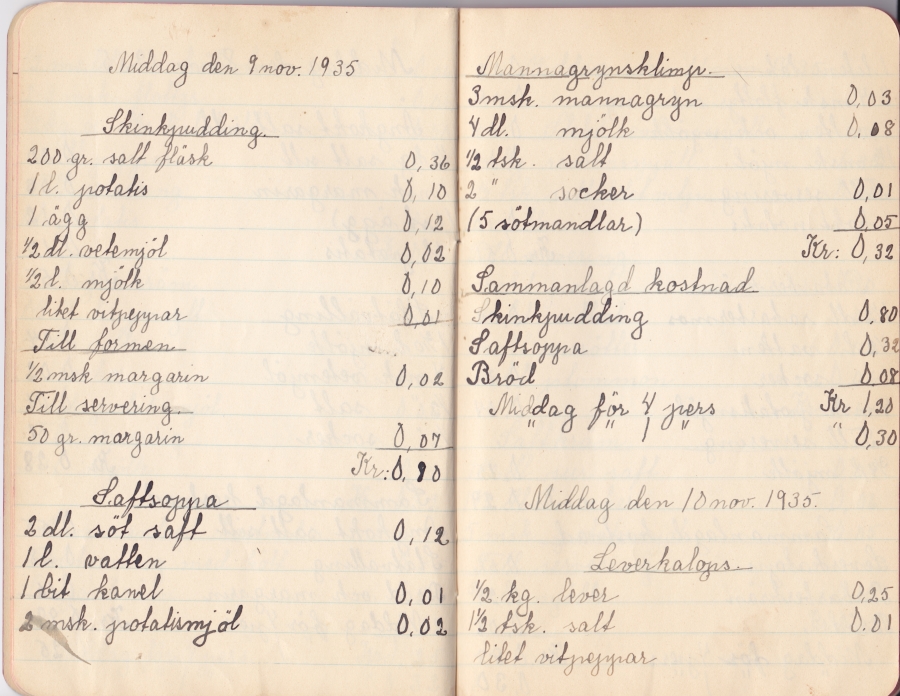 Middag den 9 nov. 1935
Skinkpudding.
200 gr. salt fläsk 0,36
1 l. potatis 0,10
1 ägg 0,12
1/2 dl. vetemjöl 0,02
1/2 l. mjölk 0,10
litet vitpeppar 0,01
Till formen
1/2 msk margarin 0,02
Till servering.
50 gr. margarin 0,07
Kr: 0,80
Saftsoppa
2 dl. söt saft 0,12
1 l. vatten
1 bit kanel 0,01
2 msk. potatismjöl 0,02
Mannagrynsklimp.
3 msk. mannagryn 0,03
4 dl. mjölk 0,08
1/2 tsk. salt
2 " socker 0,01
(5 sötmandlar) 0,05
Kr: 0,32
Sammanlagd kostnad
Skinkpudding 0,80
Saftsoppa 0,32
Bröd 0,08
Middag för 4 pers Kr 1,20
" " 1 " " 0,30
Middag den 10 nov. 1935.
Leverkalops.
1/2 kg. lever 0,25
1 1/2 tsk. salt 0.01
litet vitpeppar